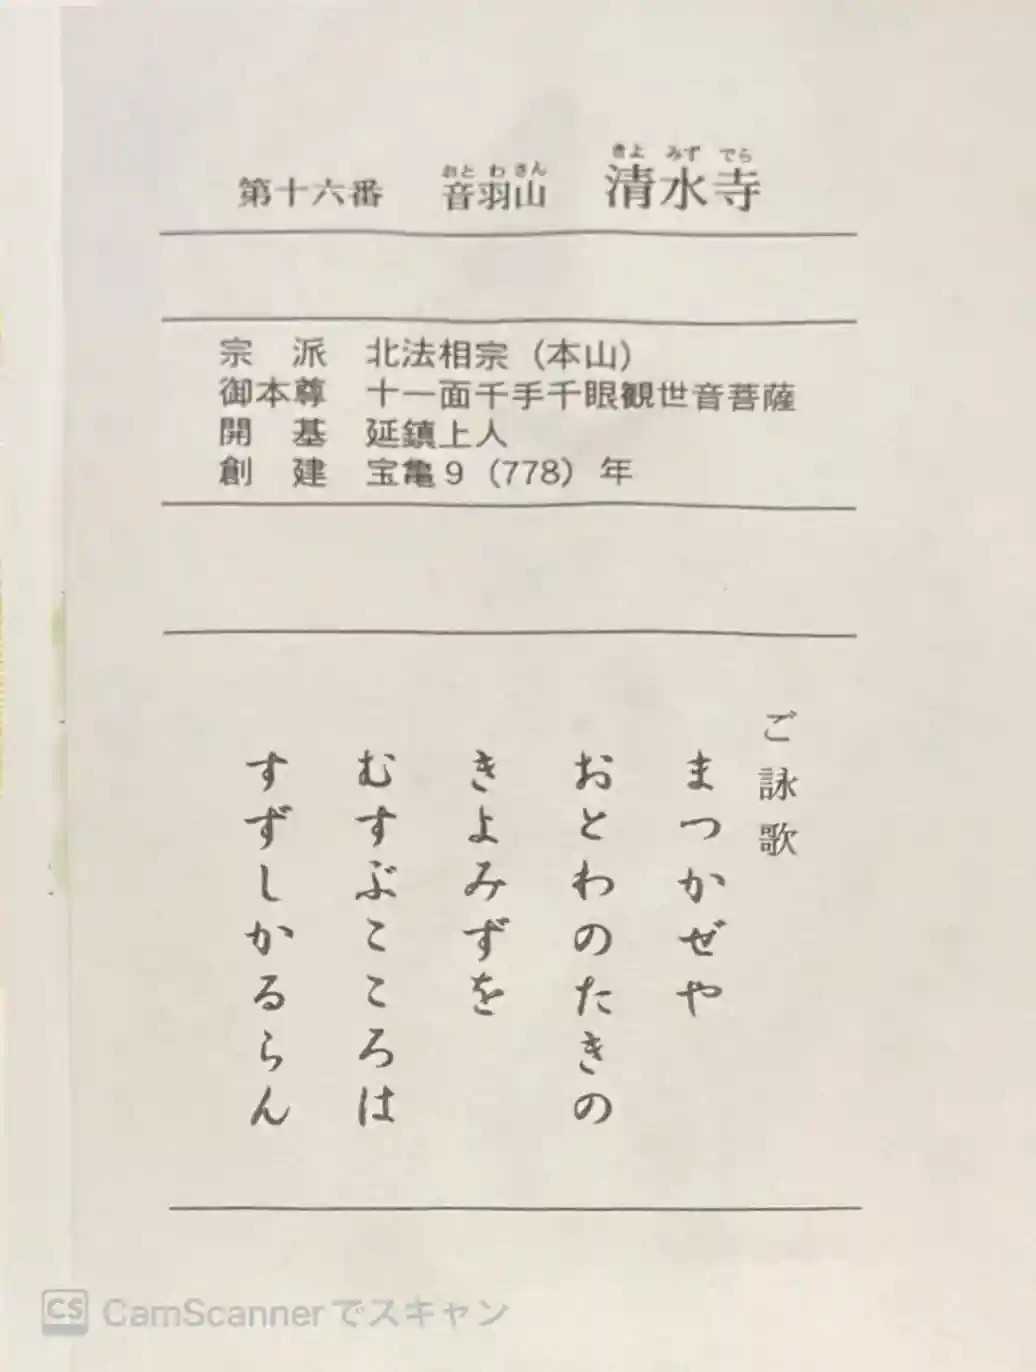 第十六番 音羽山 清水寺
おとわさん きよみずでら
宗派 北法相宗(本山)
御本尊 十一面千手千眼観世音菩薩
開基 延鎮上人
創建 宝亀9(778)年
ご詠歌
まつかぜや
おとわのたきの
きよみずを
むすぶこころは
すずしかるらん
CS CamScannerでスキャン